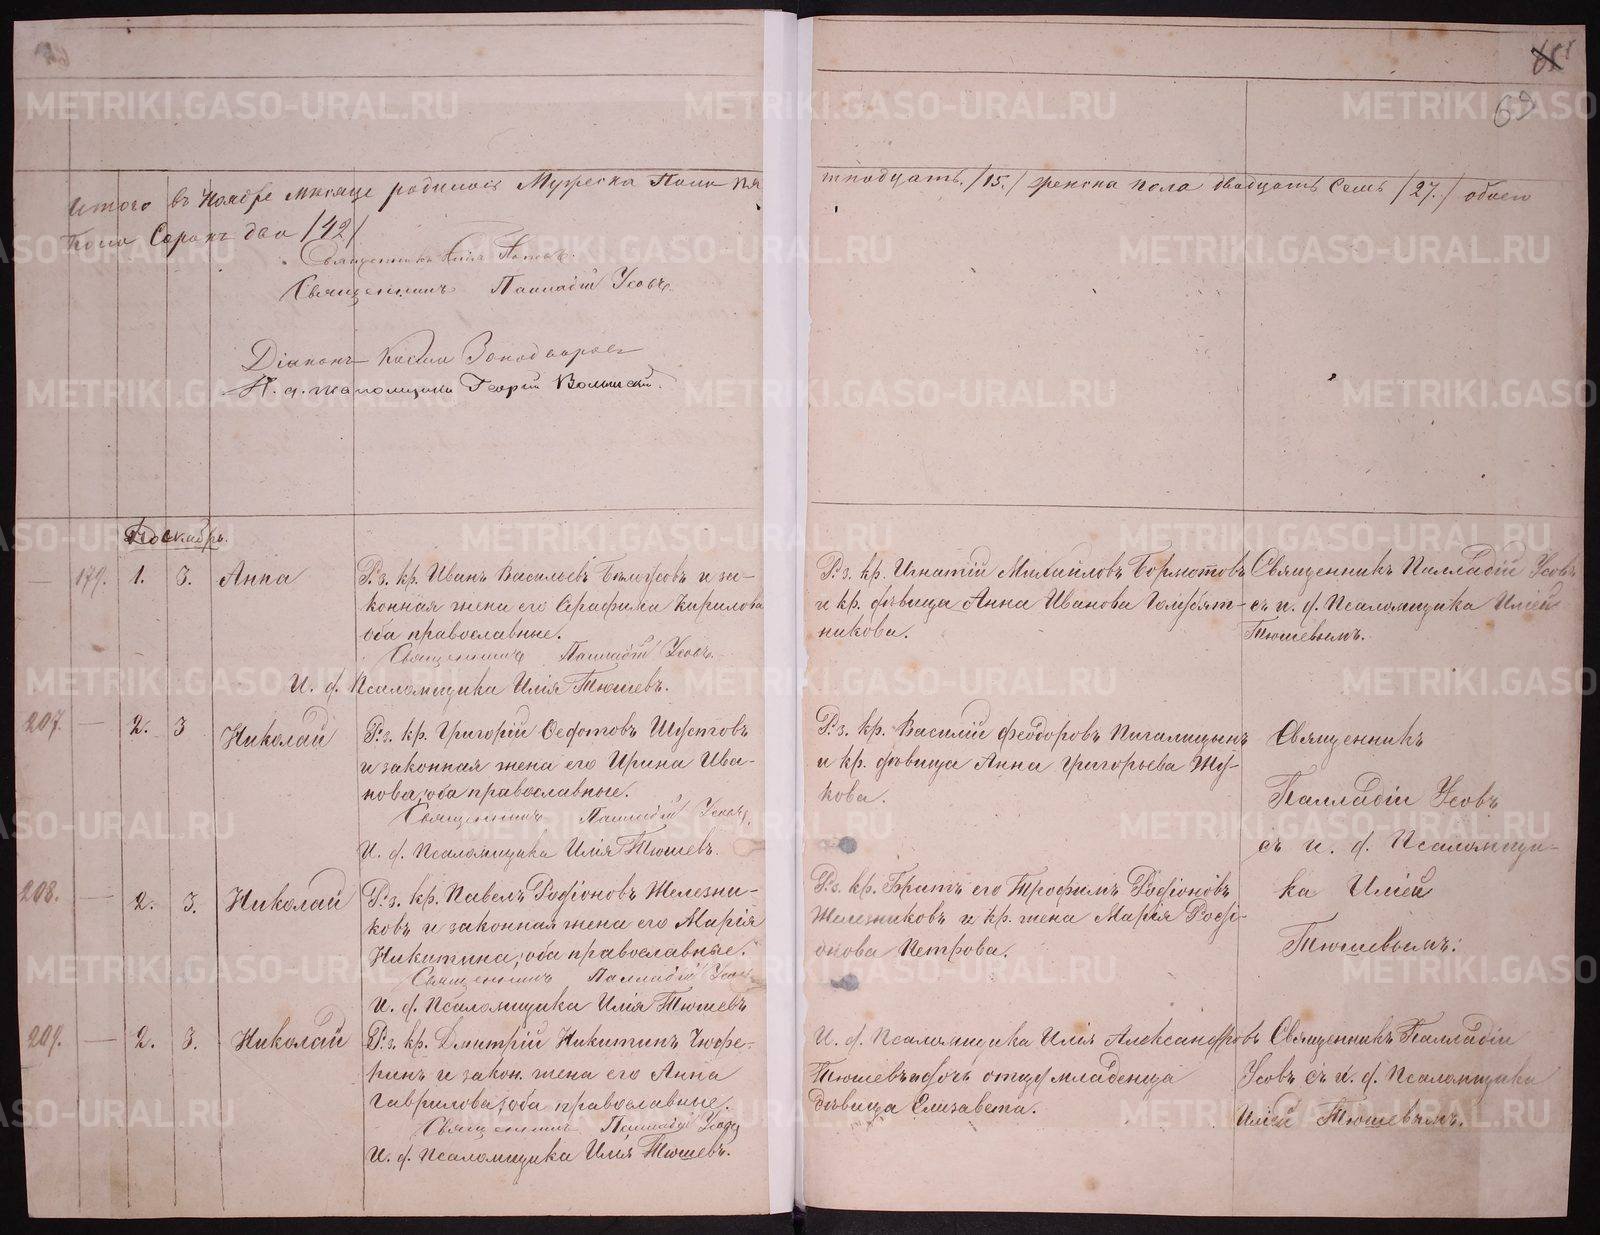 69
Итого въ Ноябре месяце родилось Мужеска Пола пя
тнодцать /15./ женска пола двадцать семь /27./ обоего
Пола Сорокъ два /42/
Священникъ Илія
Священникъ Палладій Усовъ.
Діаконъ Косма
И. д. псаломщика Георгій
Декабрь.
179. 1. 3. Анна
Р. з. кр. Иванъ Васильевъ Белоусовъ и за-
конная жена его Серафима Кирилова
оба православные.
Священникъ Палладій Усовъ.
И. д. Псаломщика Илія Тюшевъ.
Р. з. кр. Игнатій Михайловъ Бормотовъ
и кр. девица Анна Ивановна Голубят-
никова.
Священникъ Палладій Усовъ
съ и. д. Псаломщика Иліей
Тюшевымъ.
207. 2. 3 Николай
Р. з. кр. Григорій Федотовъ Шустовъ
и законная жена его Ирина Ива-
нова, оба православные.
Священникъ Палладій Усовъ.
И. д. Псаломщика Илія Тюшевъ.
Р. з. кр. Василій Феодоровъ Пигалицынъ
и кр. девица Анна Григорьева Жу-
кова.
Священникъ
Палладій Усовъ
съ и. д. Псаломщи-
ка Иліей
Тюшевымъ.
208. 2. 3. Николай
Р. з. кр. Павелъ Родіоновъ Железни-
ковъ и законная жена его Марія
Никитина, оба православные.
Священникъ Палладій Усовъ
И. д. Псаломщика Илія Тюшевъ
Р. з. кр. Братъ его Трофимъ Родіоновъ
Железниковъ и кр. жена Марія Роді-
онова Петрова.
209. 2. 3. Николай
Р. з. кр. Дмитрій Никитинъ Чюфе-
ринъ и закон. жена его Анна
Гаврилова, оба православные.
Священникъ Палладій Усовъ
И. д. Псаломщика Илія Тюшевъ.
И. д. Псаломщика Илія Александровъ
Тюшевъ и дочь отца младенца
девица Елизавета.
Священникъ Палладій
Усовъ съ и. д. Псаломщика
Иліей Тюшевымъ.
METRIKI.GASO-URAL.RU